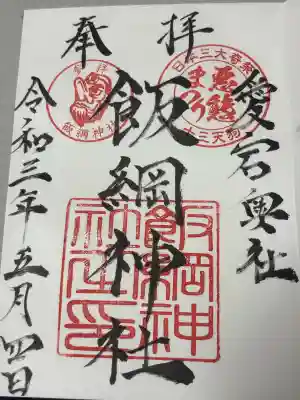 奉拝
愛宕奥社
日本三大奇祭
悪態
まつり
十三天狗
飯綱神社
飯綱神社
飯綱神
令和三年五月四日